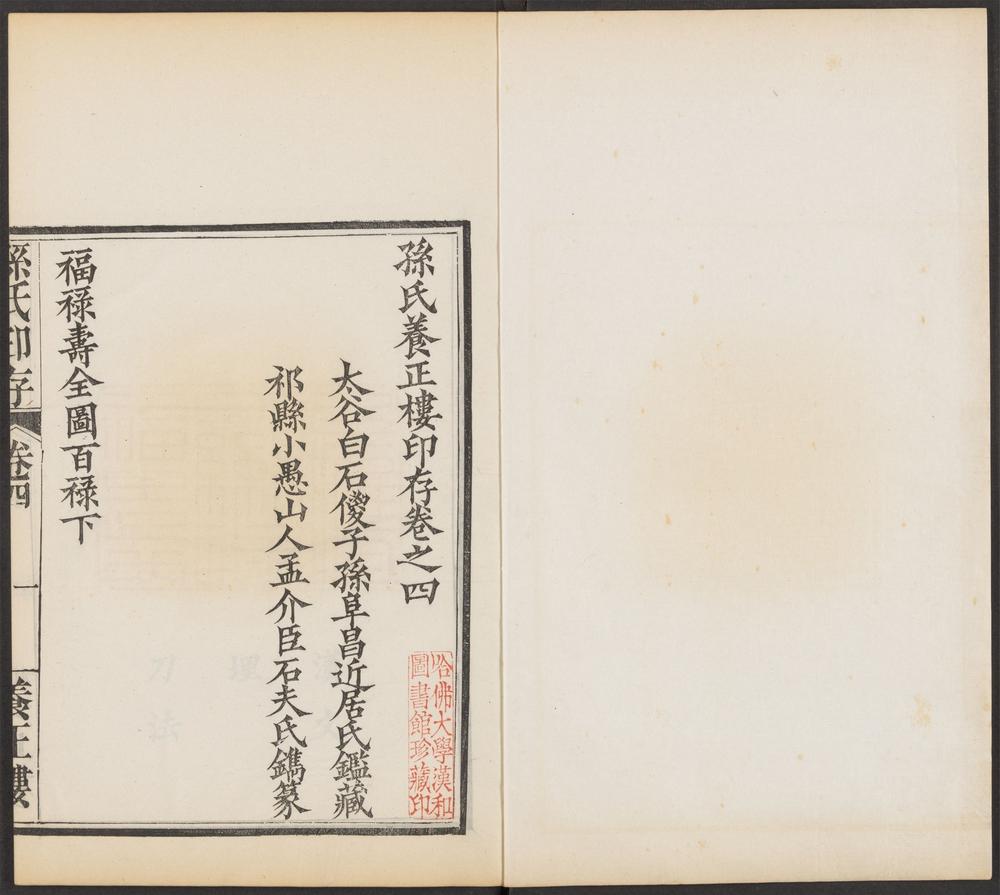 孫氏養正樓印存卷之四
太谷白石傁子孫阜昌近居氏鑑藏
祁縣小愚山人孟介臣石夫氏鐫篆
福祿壽全圖百祿下
孫氏印存 卷四 一 養正樓
哈佛大學漢和
圖書館珍藏印